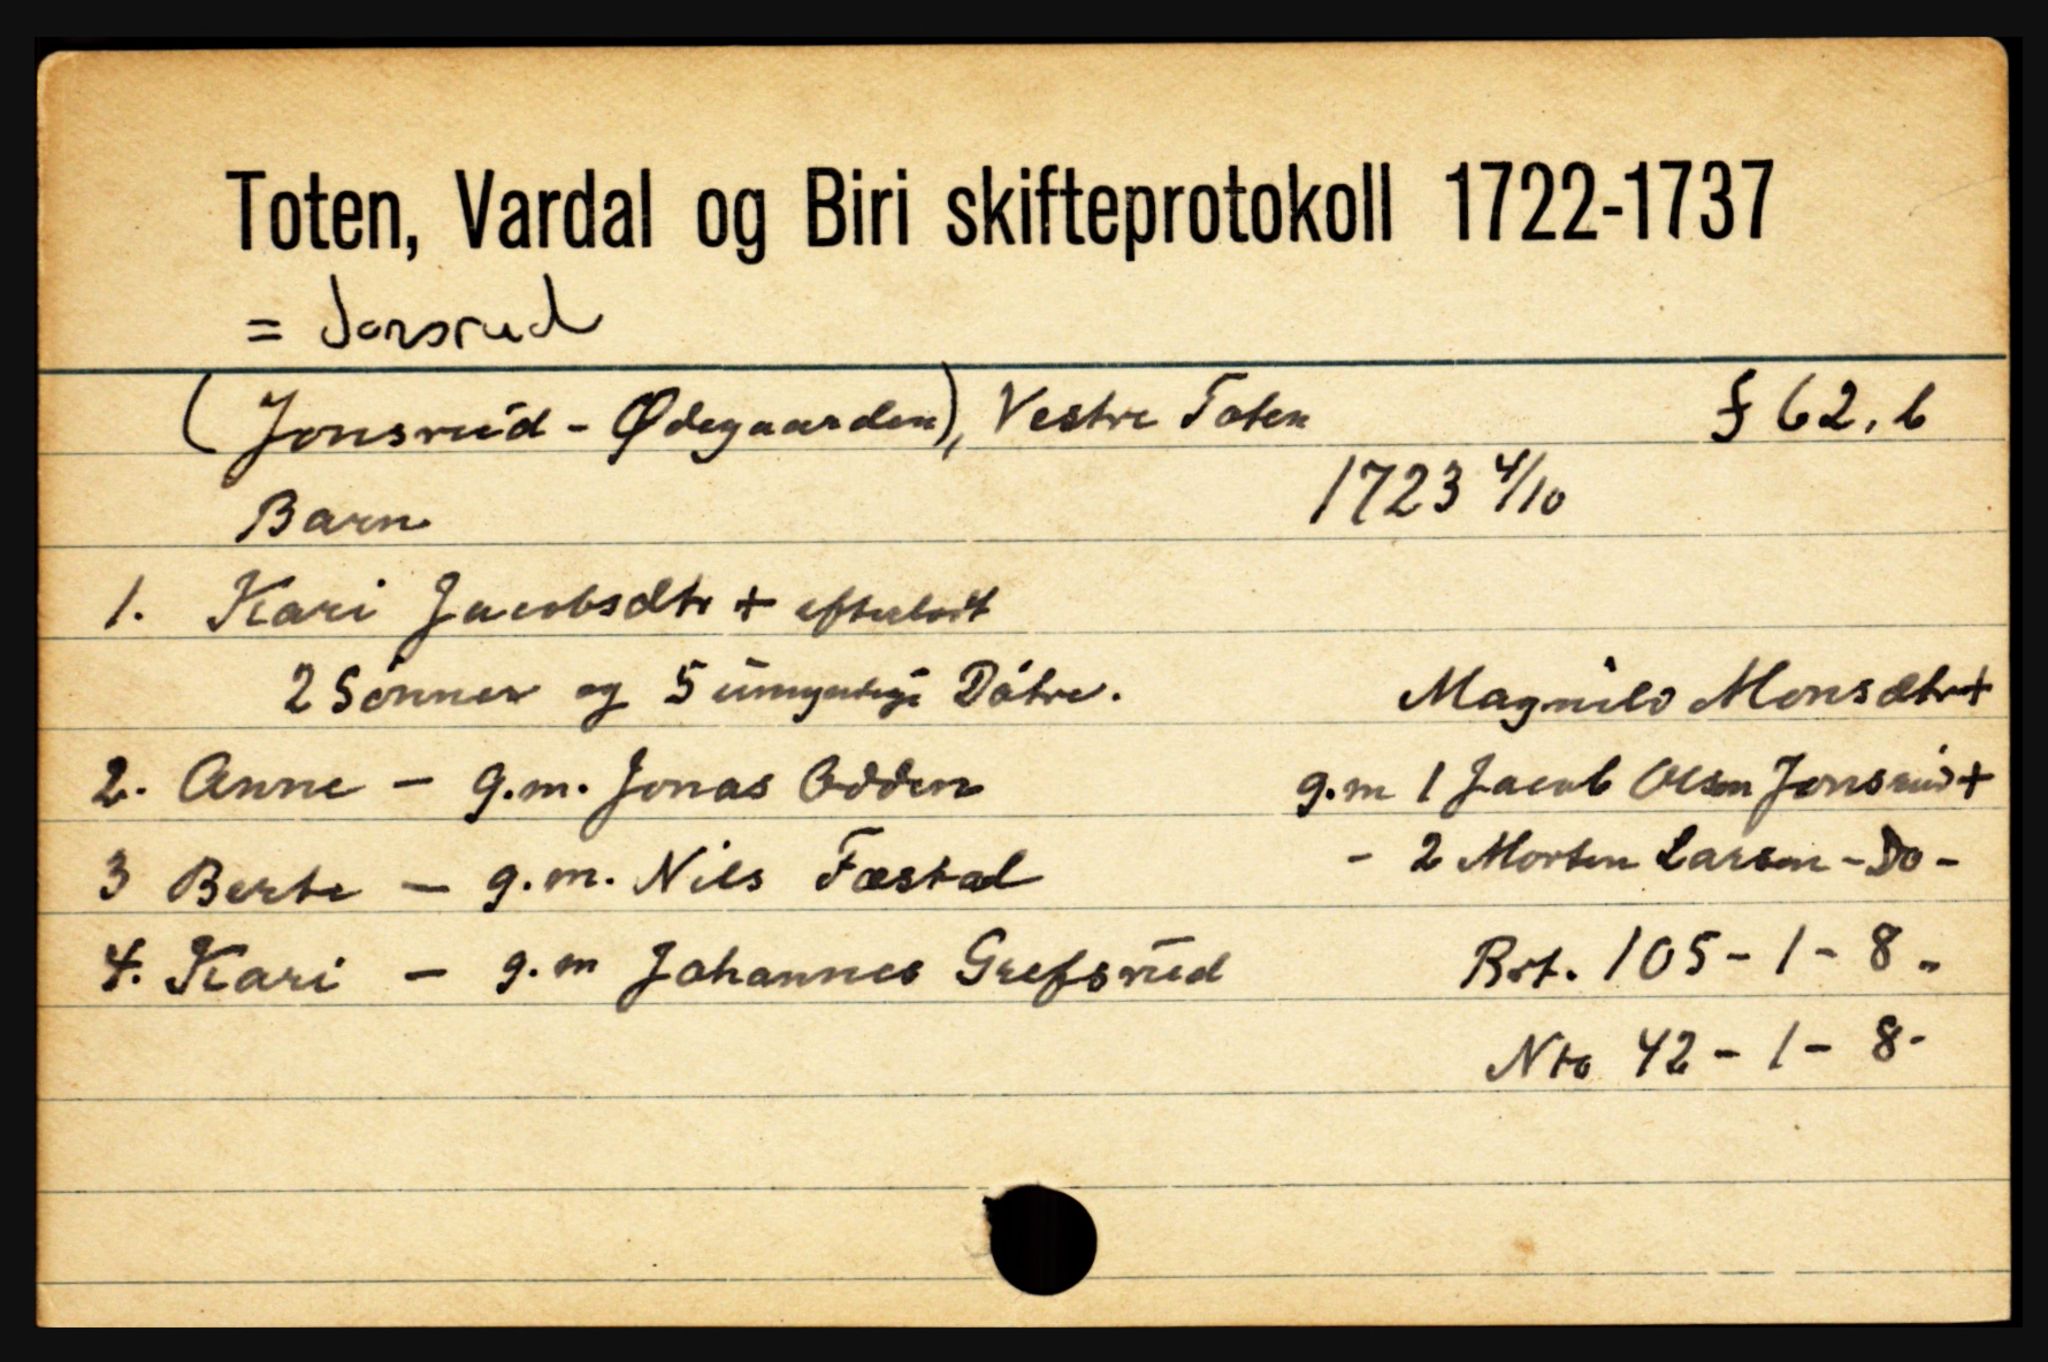 Toten, Vardal og Biri skifteprotokoll 1722-1737
= Jonsrud
(Jonsrud - Ødegaarden), Vestre Toten f 62, b
Barn 1723 4/10
1. Kari Jacobsdtr + efterlodt
2 Sönner og 5 umyndige Döttre.
Magnild Monsdtr +
2. Anne - g.m. Jonas Odden
g.m 1 Jacob Olsen Jonsrud +
3 Berte - g.m. Nils Fæstad
- 2 Morten Larsen - Do -
4. Kari - g.m Johannes Grefsrud
Bst. 105 - 1 - 8 -
Nto 42 - 1 - 8 -